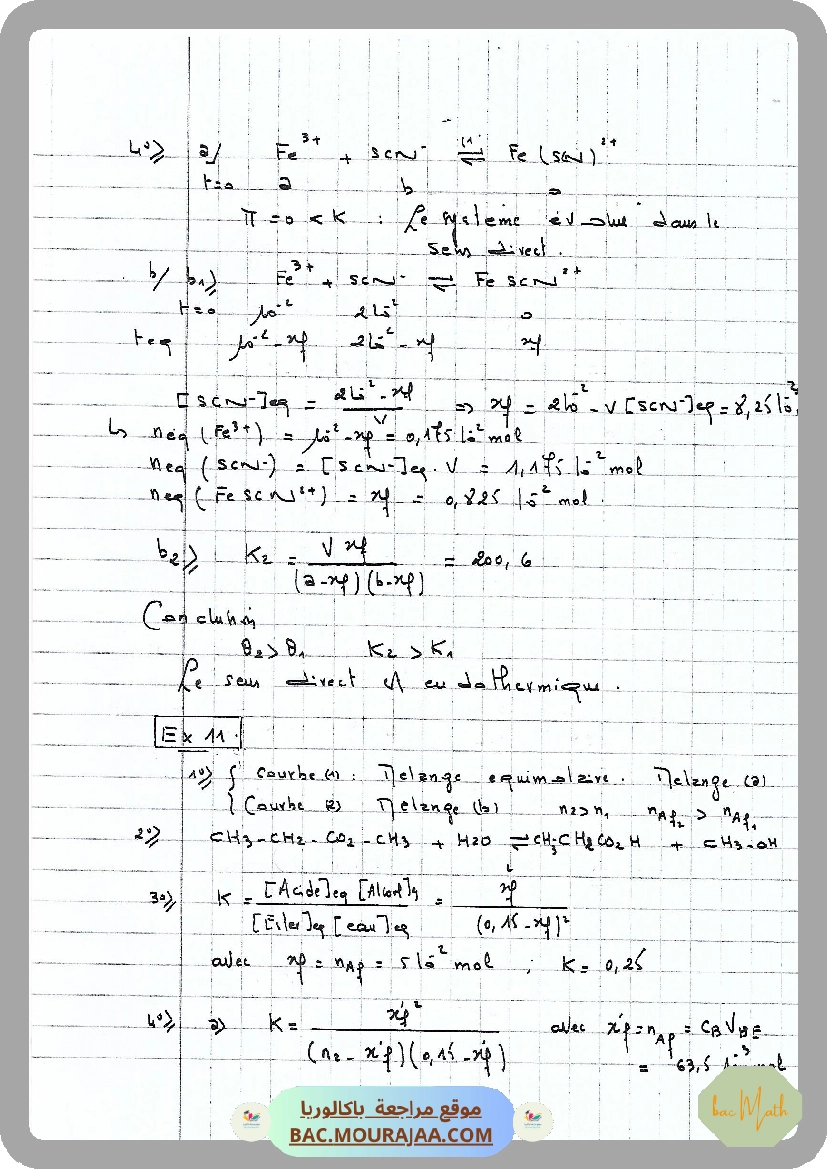 4°) a/ Fe³⁺ + SCN⁻ ⇌ (1) Fe(SCN)²⁺
t=0 a b 0
π = 0 < K : Le système évolue dans le
sens direct.
b/ b1) Fe³⁺ + SCN⁻ ⇌ FeSCN²⁺
t=0 10⁻² 2 10⁻² 0
teq 10⁻² - xf 2 10⁻² - xf xf
[SCN⁻]eq = (2 10⁻² - xf) / V => xf = 2 10⁻² - V [SCN⁻]eq = 8,25 10⁻²
↳ neq (Fe³⁺) = 10⁻² - xf = 0,175 10⁻² mol
neq (SCN⁻) = [SCN⁻]eq . V = 1,175 10⁻² mol
neq (FeSCN²⁺) = xf = 0,825 10⁻² mol.
b2) K2 = V xf / (a-xf)(b-xf) = 200,6
Conclusion
θ2 > θ1 K2 > K1
Le sens direct est endothermique.
Ex 11.
1°) { Courbe (1) : Melange equimolaire. Melange (a)
{ Courbe (2) Melange (b) n2 > n1 nAf2 > nAf1
2°) CH3-CH2-CO2-CH3 + H2O ⇌ CH3CH2CO2H + CH3-OH
3°) K = [Acide]eq [Alcool]eq / [Ester]eq [eau]eq = xf² / (0,15 - xf)²
avec xf = nAf = 5 10⁻² mol ; K = 0,25
4°) a) K = x'f² / (n2 - x'f)(0,15 - x'f) avec x'f = nAf = CB VBE
= 63,5 10⁻³ mol
bac Math
موقع مراجعة باكالوريا
BAC.MOURAJAA.COM